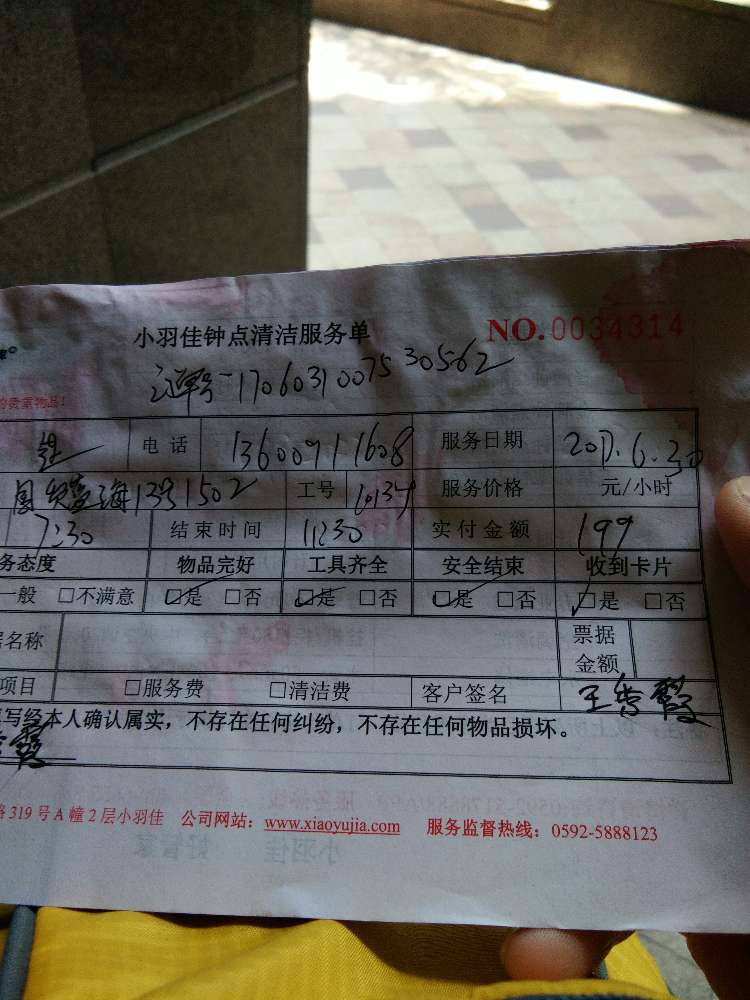 小羽佳钟点清洁服务单 NO.0034314
1706031007530562
的贵重物品！
电话 13600911608 服务日期 2017.6.30
海13号1502 工号 10134 服务价格 元/小时
7:30 结束时间 11:30 实付金额 199
务态度 物品完好 工具齐全 安全结束 收到卡片
一般 □不满意 □是 □否 □是 □否 □是 □否 □是 □否
名称 票据金额
项目 □服务费 □清洁费 客户签名 王秀霞
写经本人确认属实，不存在任何纠纷，不存在任何物品损坏。
霞
路319号A幢2层小羽佳 公司网站：www.xiaoyujia.com 服务监督热线：0592-5888123